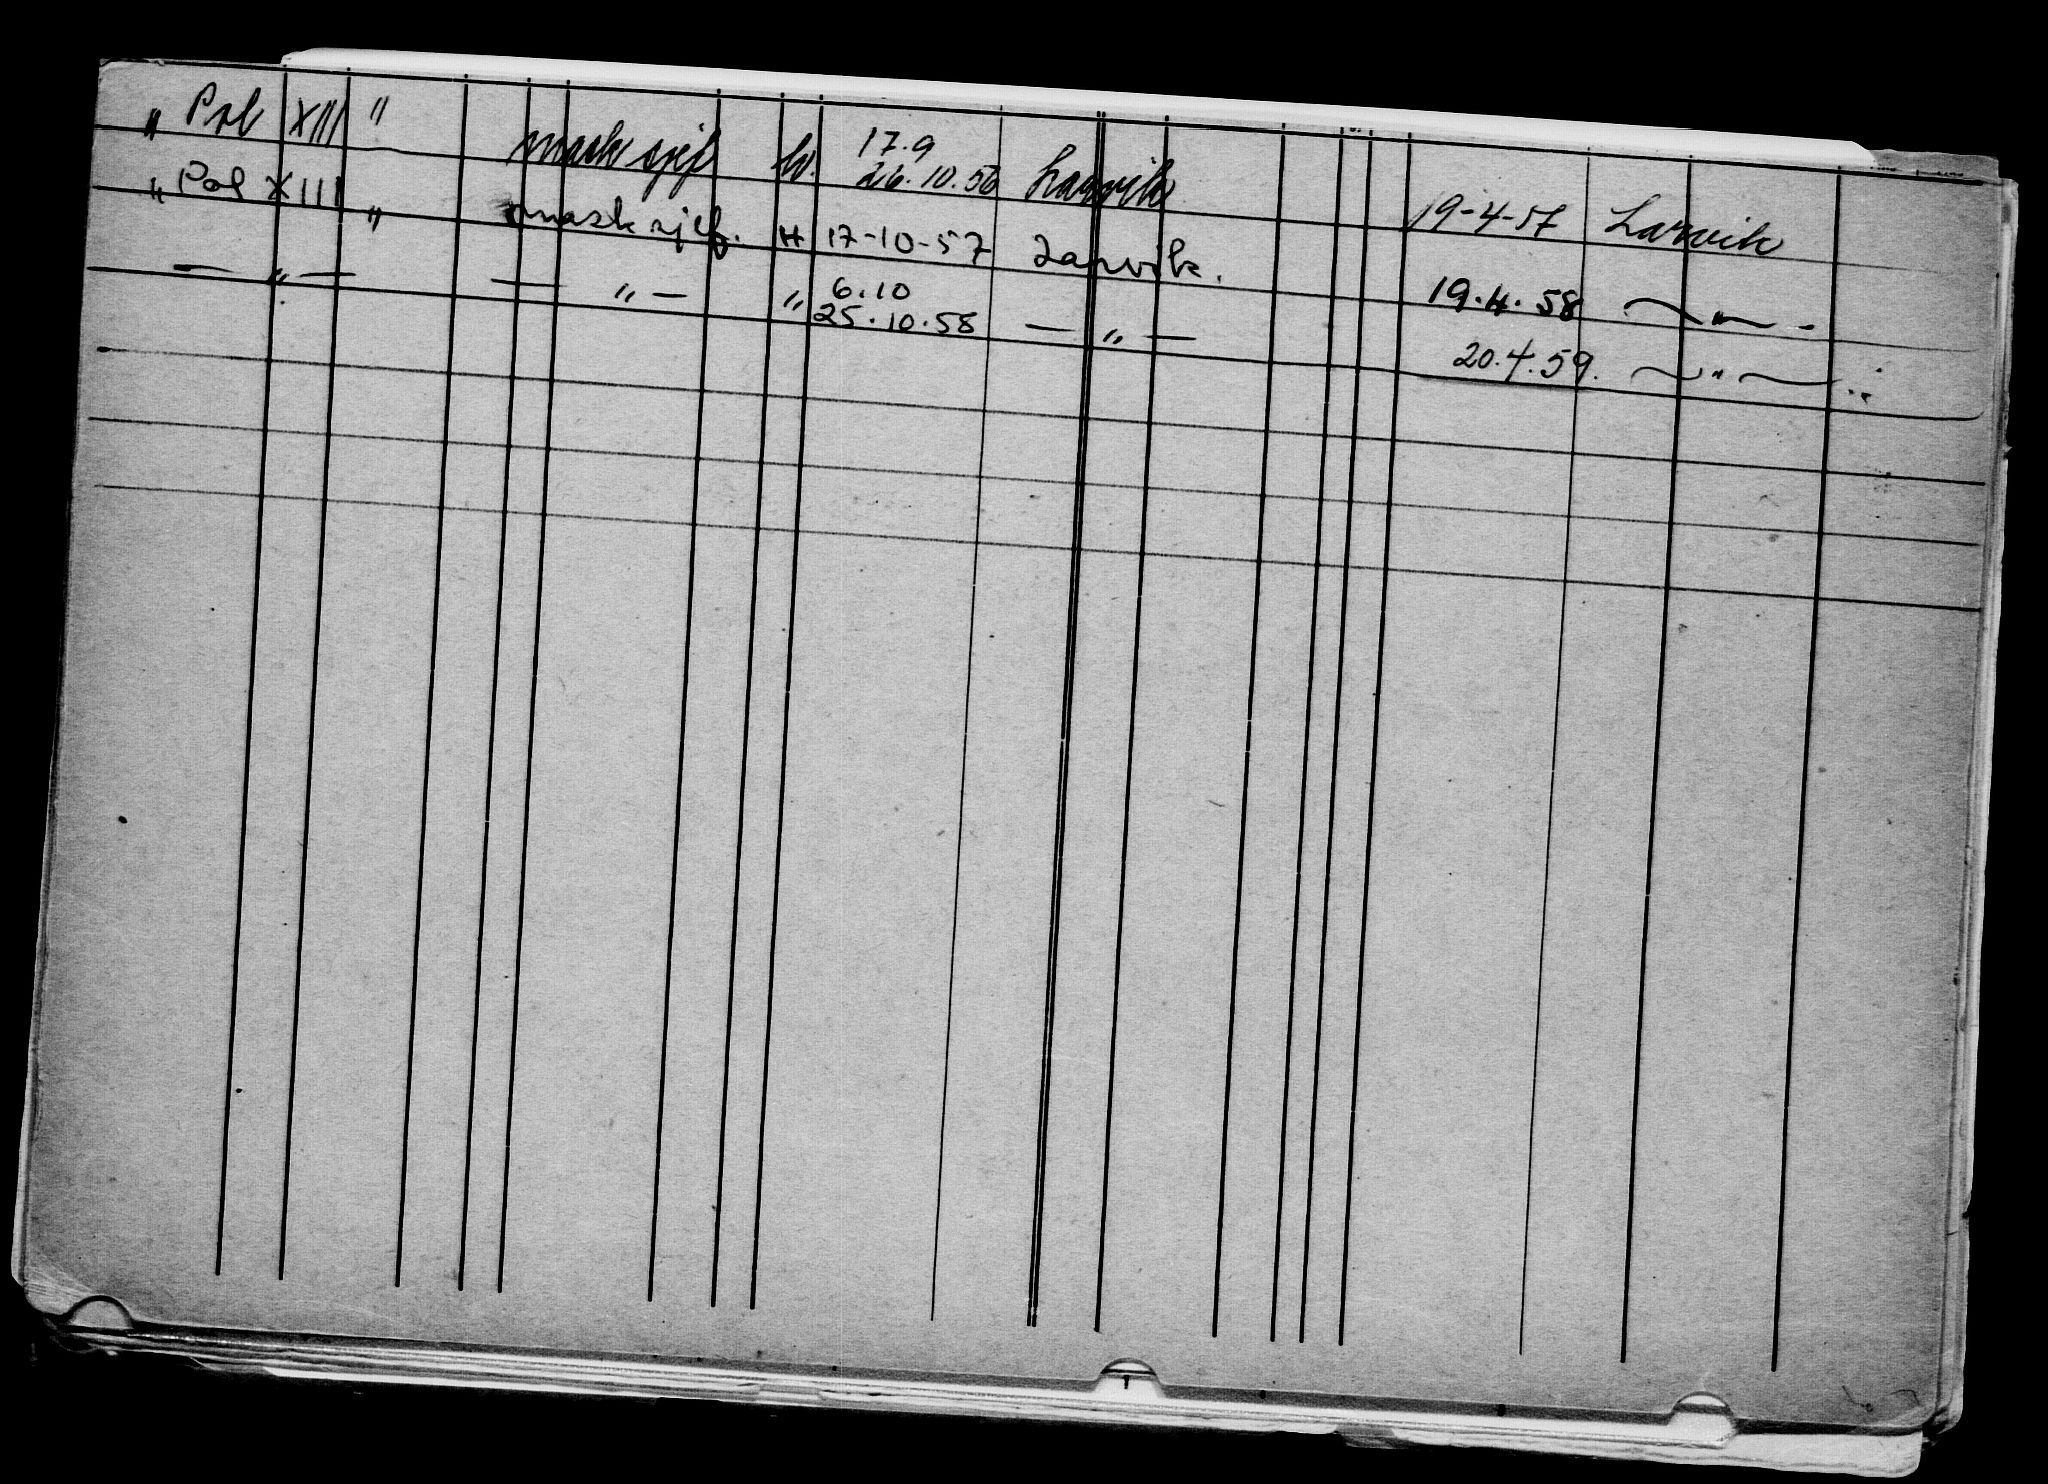 " Pol XIII " mask sjef H. 17.9 26.10.56 Larvik 19-4-57 Larvik
" Pol XIII " mask sjef. H 17-10-57 Larvik. 19.4.58 — " —
— " — — " — " 6.10 25.10.58 — " — 20.4.59. — " —